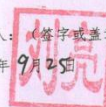 人：（签字或盖
年9月25日
刘亮